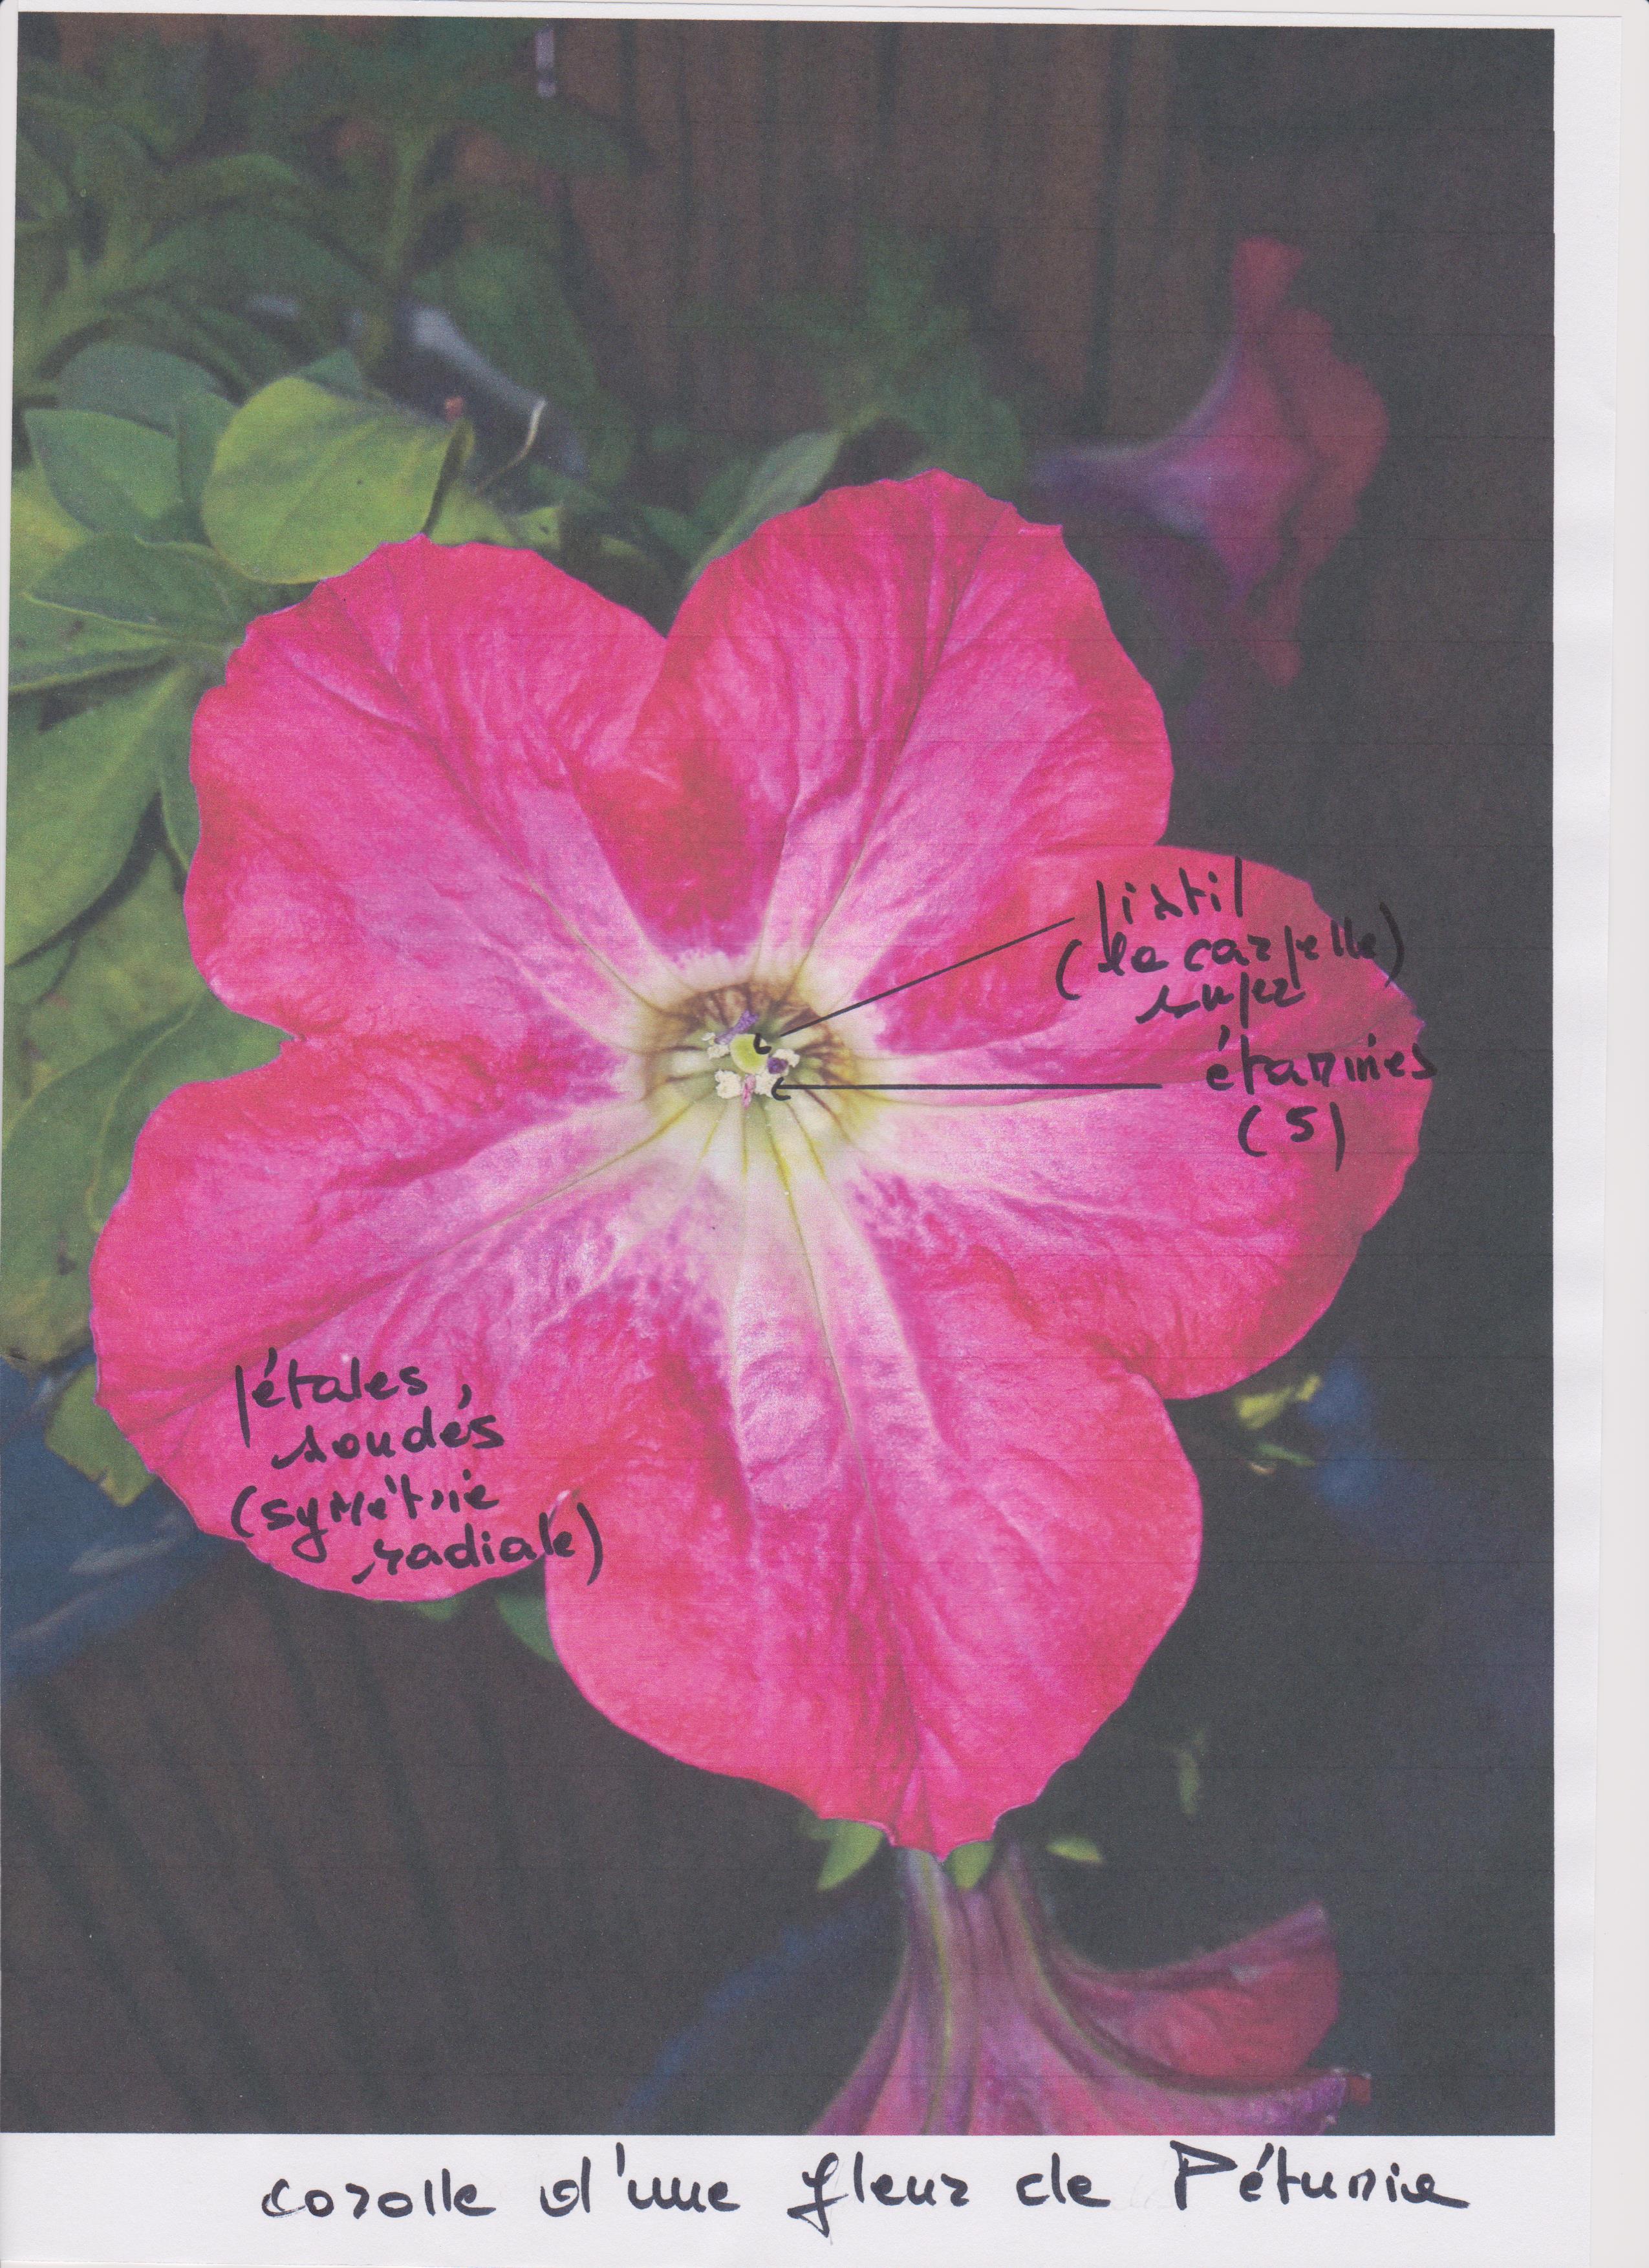 pistil
(le carpelle)
super
étamines
(5)
pétales,
soudés
(symétrie
radiale)
corolle d'une fleur de Pétunia